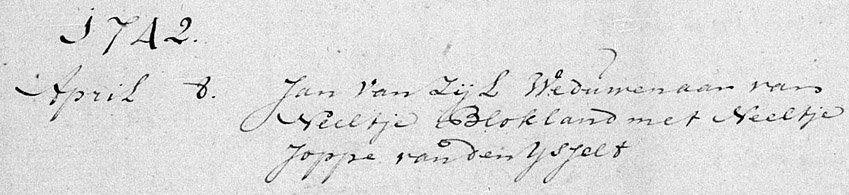 1742.
April 8. Jan van Zijl Weduwenaar van
Neeltje Blokland met Neeltje
Joppe van den Ysselt